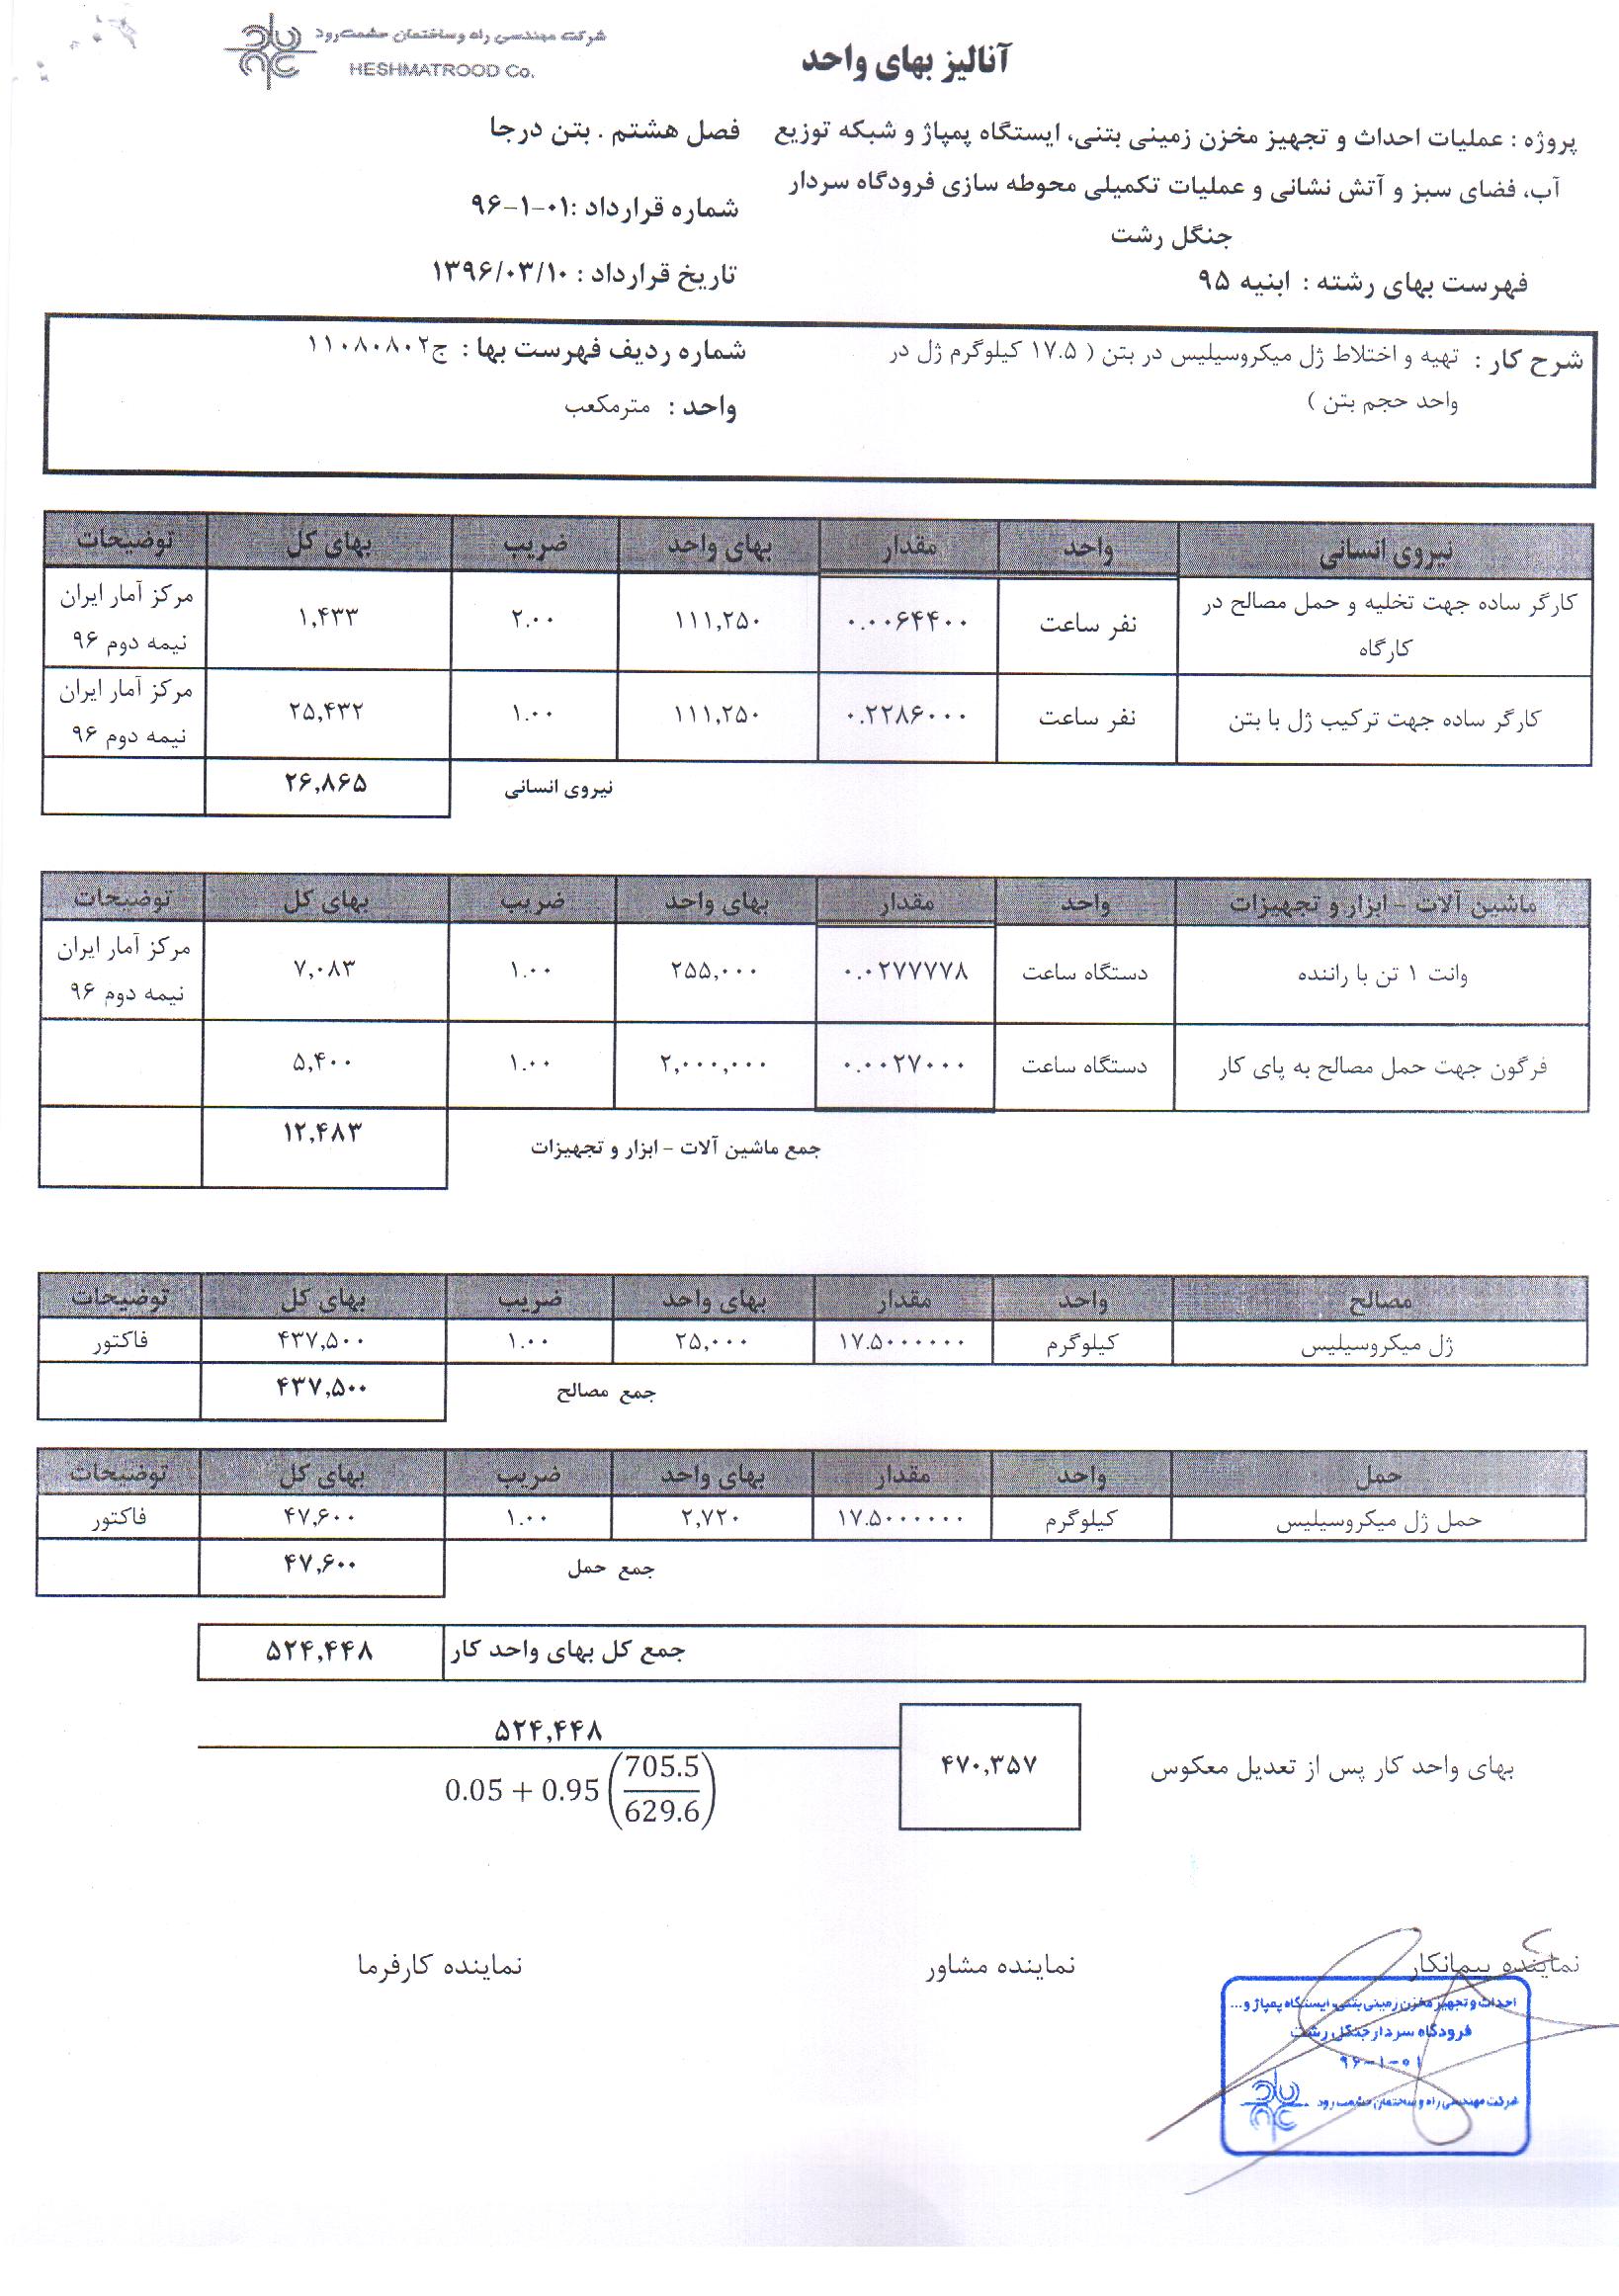 شرکت مهندسی راه و ساختمان حشمت‌رود
HESHMATROOD Co.
آنالیز بهای واحد
پروژه : عملیات احداث و تجهیز مخزن زمینی بتنی، ایستگاه پمپاژ و شبکه توزیع
آب، فضای سبز و آتش نشانی و عملیات تکمیلی محوطه سازی فرودگاه سردار
جنگل رشت
فهرست بهای رشته : ابنیه ۹۵
فصل هشتم . بتن درجا
شماره قرارداد :۰۱-۱-۹۶
تاریخ قرارداد : ۱۳۹۶/۰۳/۱۰
شرح کار : تهیه و اختلاط ژل میکروسیلیس در بتن ( ۱۷.۵ کیلوگرم ژل در
واحد حجم بتن )
شماره ردیف فهرست بها : ج۱۱۰۸۰۸۰۲
واحد : مترمکعب
نیروی انسانی واحد مقدار بهای واحد ضریب بهای کل توضیحات
کارگر ساده جهت تخلیه و حمل مصالح در کارگاه نفر ساعت ۰.۰۰۶۴۴۰۰ ۱۱۱,۲۵۰ ۲.۰۰ ۱,۴۳۳ مرکز آمار ایران نیمه دوم ۹۶
کارگر ساده جهت ترکیب ژل با بتن نفر ساعت ۰.۲۲۸۶۰۰۰ ۱۱۱,۲۵۰ ۱.۰۰ ۲۵,۴۳۲ مرکز آمار ایران نیمه دوم ۹۶
نیروی انسانی ۲۶,۸۶۵
ماشین آلات - ابزار و تجهیزات واحد مقدار بهای واحد ضریب بهای کل توضیحات
وانت ۱ تن با راننده دستگاه ساعت ۰.۰۲۷۷۷۷۸ ۲۵۵,۰۰۰ ۱.۰۰ ۷,۰۸۳ مرکز آمار ایران نیمه دوم ۹۶
فرگون جهت حمل مصالح به پای کار دستگاه ساعت ۰.۰۰۲۷۰۰۰ ۲,۰۰۰,۰۰۰ ۱.۰۰ ۵,۴۰۰
جمع ماشین آلات - ابزار و تجهیزات ۱۲,۴۸۳
مصالح واحد مقدار بهای واحد ضریب بهای کل توضیحات
ژل میکروسیلیس کیلوگرم ۱۷.۵۰۰۰۰۰۰ ۲۵,۰۰۰ ۱.۰۰ ۴۳۷,۵۰۰ فاکتور
جمع مصالح ۴۳۷,۵۰۰
حمل واحد مقدار بهای واحد ضریب بهای کل توضیحات
حمل ژل میکروسیلیس کیلوگرم ۱۷.۵۰۰۰۰۰۰ ۲,۷۲۰ ۱.۰۰ ۴۷,۶۰۰ فاکتور
جمع حمل ۴۷,۶۰۰
جمع کل بهای واحد کار ۵۲۴,۴۴۸
بهای واحد کار پس از تعدیل معکوس ۴۷۰,۳۵۷
۵۲۴,۴۴۸
0.05 + 0.95 (705.5/629.6)
نماینده پیمانکار نماینده مشاور نماینده کارفرما
احداث و تجهیز مخزن زمینی بتنی، ایستگاه پمپاژ و...
فرودگاه سردار جنگل رشت
۹۶-۱-۰۱
شرکت مهندسی راه و ساختمان حشمت رود